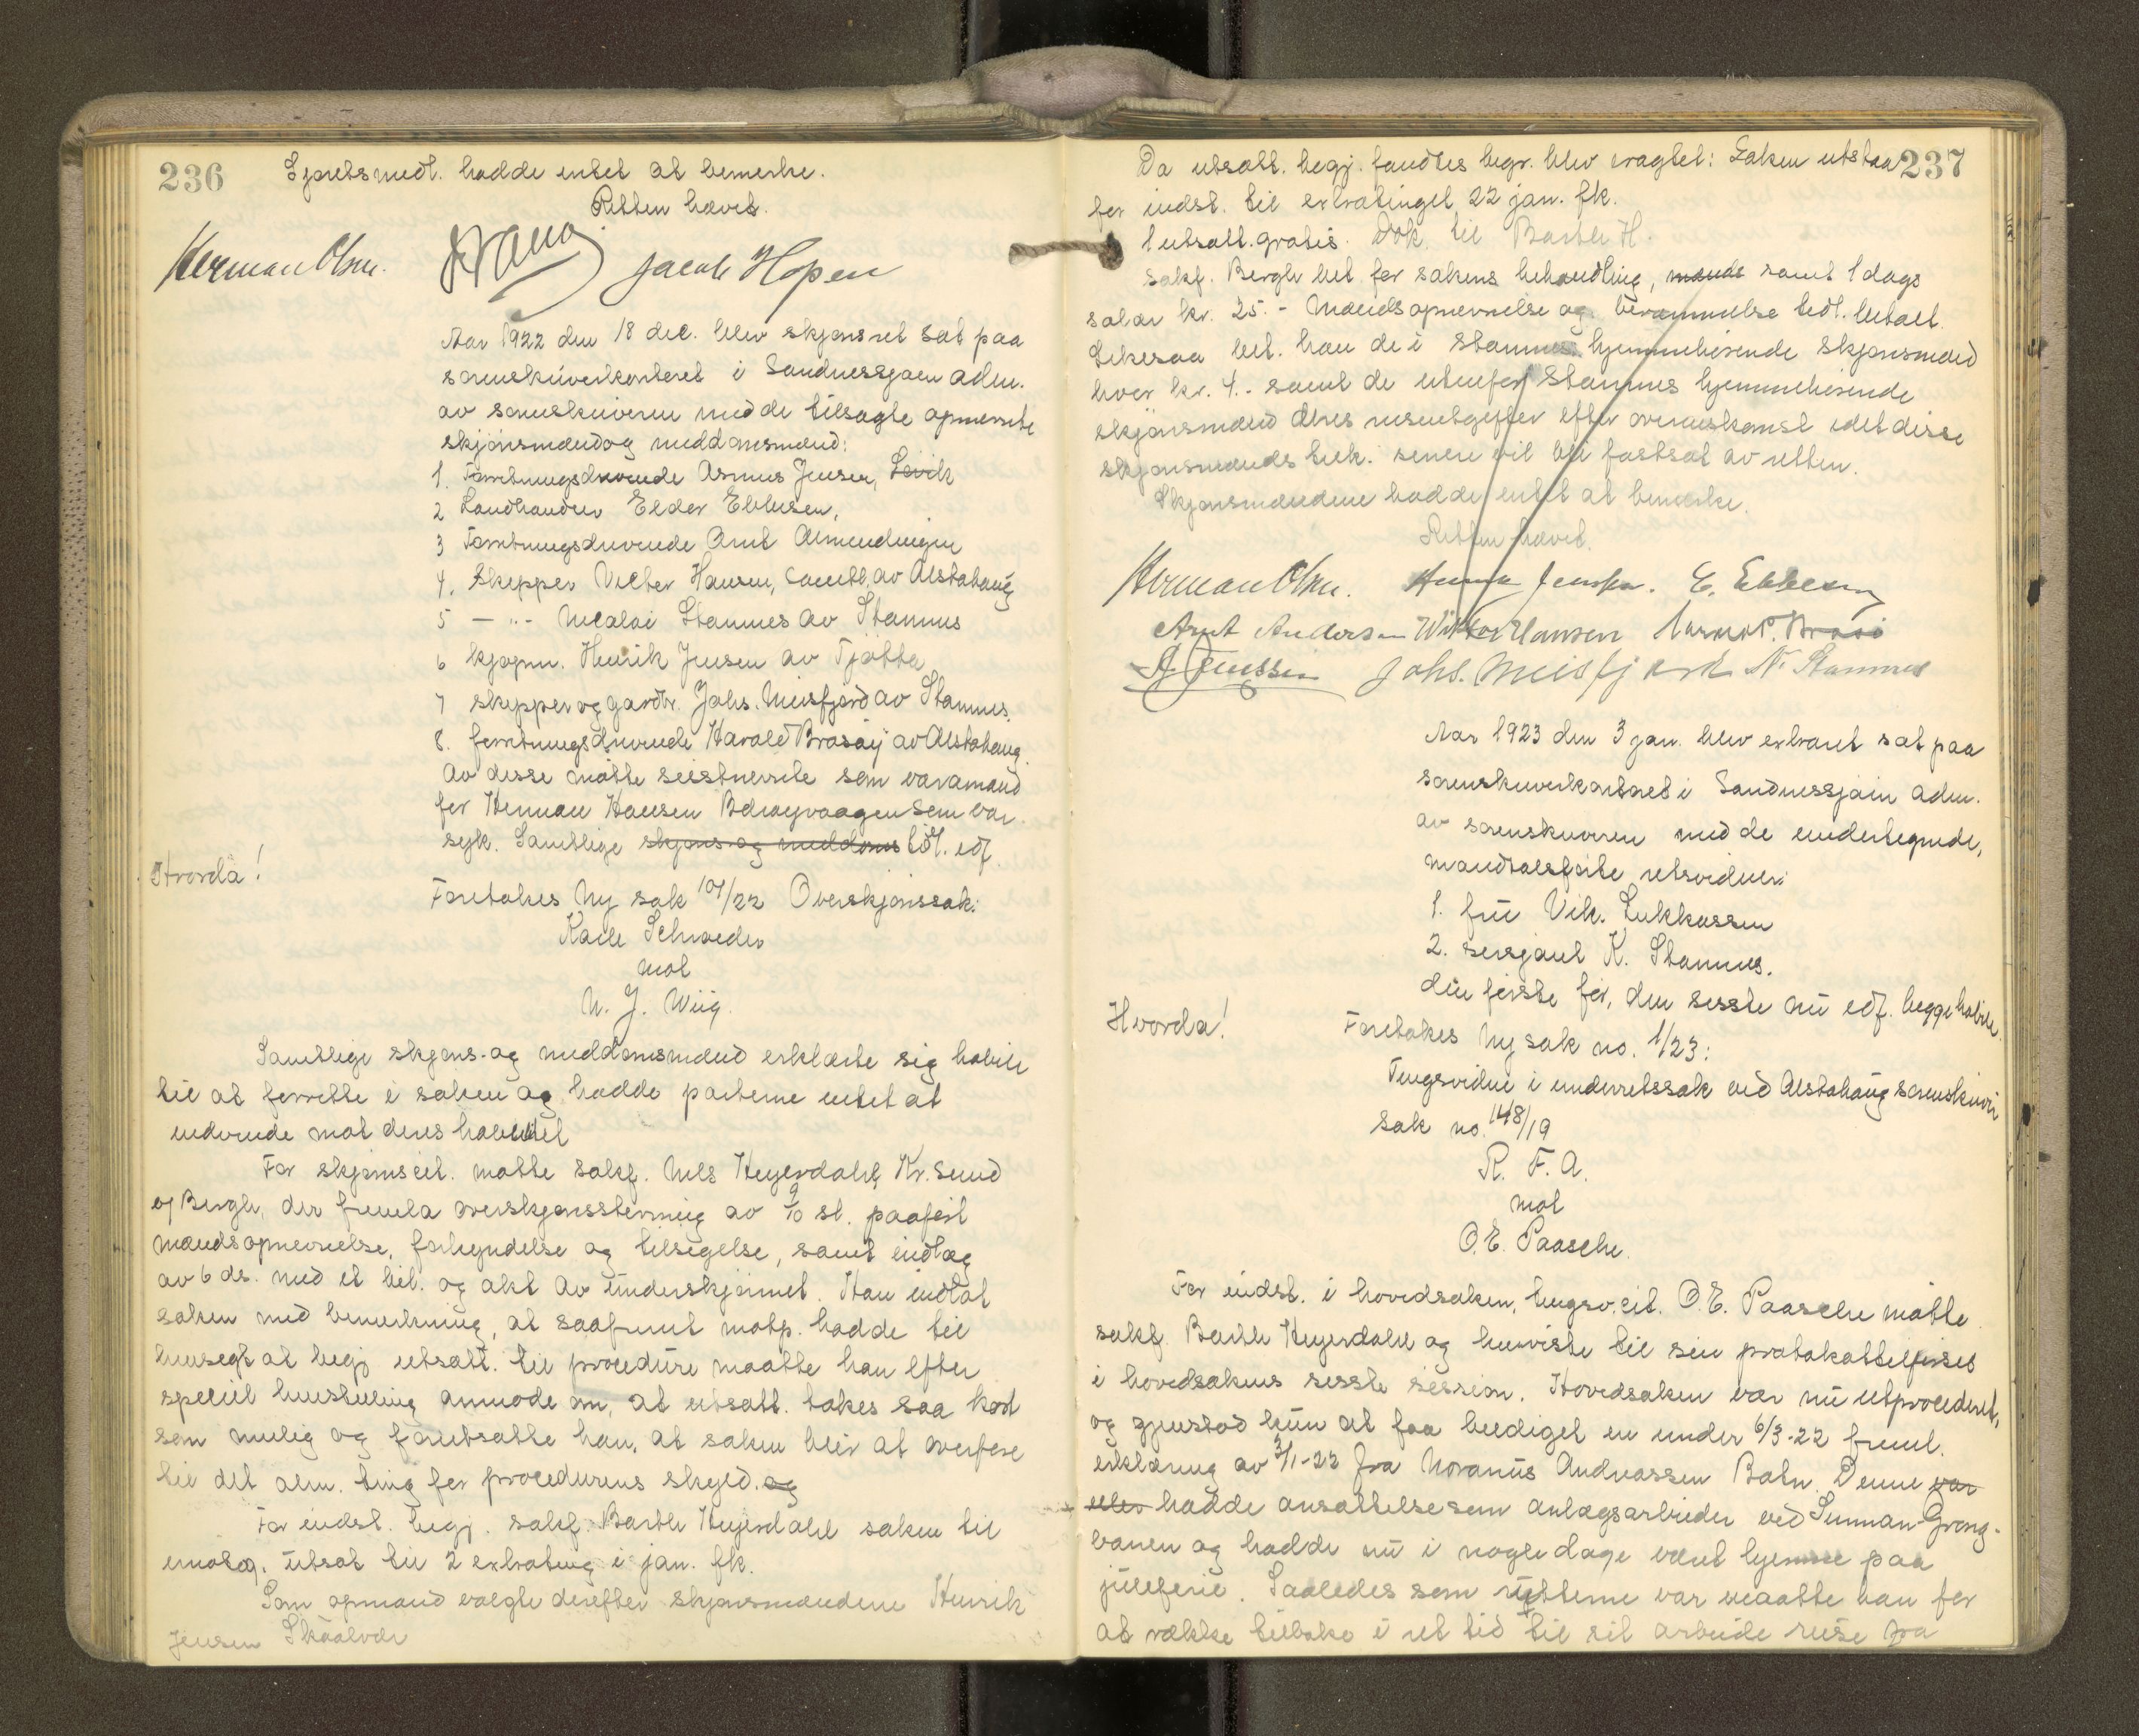 236
Skjønsmedl. hadde intet at bemerke.
Retten hævet.
Herman Olsen. Jacob Hopen
Aar 1922 den 18 dec. blev skjønsret sat paa
sorenskriverkontoret i Sandnessjøen adm.
av sorenskriveren med de tilsagte opnævnte
skjønsmænd og meddomsmænd:
1. Forretningsdrivende Asmus Jensen, Levik
2 Landhandler Elder Ebbesen,
3 Forretningsdrivende Arnt Almendingen
4. Skipper Vilter Hansen, samtl. av Alstahaug
5 — " — Nicolai Stamnes av Stamnes
6 kjøpm. Henrik Jensen av Tjøtta
7 skipper og gardbr. Johs. Meisfjord av Stamnes.
8. forretningsdrivende Harald Brasøy av Alstahaug.
Av disse møtte sidstnevnte som varamand
for Herman Hansen Belsøyvaagen som var
syk. Samtlige skjøns- og meddoms tidl. edf.
Hvorda!
Foretokes Ny sak 107/22 Overskjønssak:
Kalle Schrøder
mot
N. J. Wiig.
Samtlige skjøns- og meddomsmænd erklærte sig habile
til at forrette i saken og hadde parterne intet at
indvende mot deres habilitet
For skjønscit. møtte sakf. Nils Heyerdahl, Kr.sund
o/ Bergh, der fremla overskjønsstevning av 9/10 sl. paaført
mændsopnevnelse, forkyndelse og tilsigelse, samt indlæg
av 6 ds. med et bil. og akt av underskjønnet. Han indlot
saken med bemerkning, at saafremt motp. hadde til
hensegt at begj. utsætt. til procedure maatte han efter
speciel henstilling anmode om, at utsætt. tokes saa kort
som mulig og forutsatte han, at saken blir at overføre
til det alm. ting for procedurens skyld. og
For indst. begj. sakf. Barthe Heyerdahl saken til
imøtg. utsat til 2 extrating i jan. fk.
Som opmand valgte derefter skjønsmændene Henrik
Jensen Skaalvær
237
Da utsætt. begj. fandtes begr. blev eragtet: Saken utstaar
for indst. til extratinget 22 jan. fk.
1 utsætt. gratis. Dok. til Barthe H.
Sakf. Bergh bet. for sakens behandling, mænds samt 1 dags
salær kr. 25.- Mændsopnevnelse og berammelse tidl. betalt.
Likesaa bet. han de i Stamnes hjemmehørende skjønsmænd
hver kr. 4.- samt de utenfor Stamnes hjemmehørende
skjønsmænd deres reiseutgifter efter overenskomst idet disse
skjønsmænds bet. senere vil bli fastsat av retten.
Skjønsmændene hadde intet at bemerke.
Retten hævet.
Herman Olsen. Asmus Jensen. E. Ebbesen
Arnt Andersen Wiktor Hansen Harald P. Brasø
H Jenssen Johs. Meisfjord N. Stamnes
Aar 1923 den 3 jan. blev extraret sat paa
sorenskriverkontoret i Sandnessjøen adm.
av sorenskriveren med de undertegnede,
mandtalsførte retsvidner:
1. frü Vik. Lukkassen
2. sersjant K. Stamnes.
den første før, den sisste nu edf. begge habile.
Hvorda!
Foretokes Ny sak no. 1/23:
Tingsvidne i underretssak ved Alstahaug sorenskriveri
sak no. 148/19
R. F. A.
mot
O. E. Paasche.
For indst. i hovedsaken, tingsv.cit. O. E. Paasche møtte
sakf. Barthe Heyerdahl og henviste til sin protokoltilførsel
i hovedsakens sisste session. Hovedsaken var nu utprocederet,
og gjenstod kun at faa beediget en under 6/3-22 freml.
erklæring av 3/1-22 fra Noranus Andreassen Batn. Denne var
eller hadde ansættelse som anlægsarbeider ved Sunnan-Grong-
banen og hadde nu i nogle dage været hjemme paa
juleferie. Saaledes som rutterne var maatte han for
at række tilbake i ret tid til sit arbeide reise fra